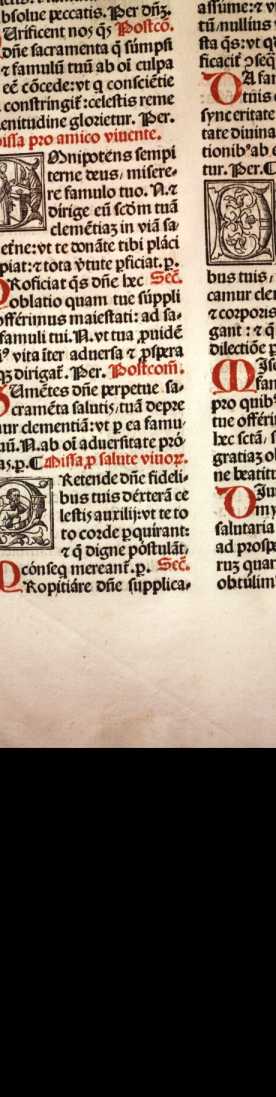 bsolue peccatis. Per dñz.
Urificent nos qs Postcõ.
dñe sacramenta q̃ sũpsi
⁊ famulũ tuũ ab oĩ culpa
eẽ cõcede: vt q̃ conscẽtie
constringit̃: celestis reme
enitudine glorietur. Per.
issa pro amico viuente.
Mnipotẽns sempi
terne deus, misere
re famulo tuo. N. ⁊
dirige eũ scd̃m tuã
clemẽtiaʒ in viã sa
etne: vt te donãte tibi placi
piat: ⁊ tota v̓tute p̱ficiat. p̱.
Roficiat qs dñe hec Sec̃.
oblatio quam tue suppli
offerimus maiestati: ad sa
famuli tui. N. vt tua ꝓuidẽ
vita ĩter aduersa ⁊ ꝓspera
qʒ dirigat̃. Per. Postcom̃.
Umẽtes dñe perpetue sa
cramẽta salutis, tuã depre
ur clementiã: vt p̱ ea famu
uũ. N. ab oĩ aduersitate pro
as. p̱. C Missa ꝓ salute viuoꝝ.
Retende dñe fideli
bus tuis dexterã ce
lestis auxilij: vt te to
to corde p̱quirant:
⁊ q̃ digne postulãt,
cõseq̃ mereant̃. p̱. Sec̃.
Ropitiãre dñe supplica
assume: ⁊ v
tũ, nullius
sta qs: vt q
ficaciẽ ꝯseq̃
A fam
tuis
synceritate
tate diuina
tionib⁹ ab
tur. Per. C
bus tuis,
camur cle
⁊ corporis
gant: ⁊ q̃
dilectiõe p
fam
pro quib⁹
tue offerim
hec sctã, s
gratias ob
ne beatitu
my
salutaria
ad prospe
ruʒ quar
obtulim⁹